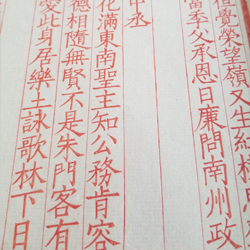 覺榮望又生紅
當季父承恩日廉問南州政
中丞
化滿東南聖王知公務肯容
德相隨無賢不是朱門客有
愛此身居樂土詠歌林下日